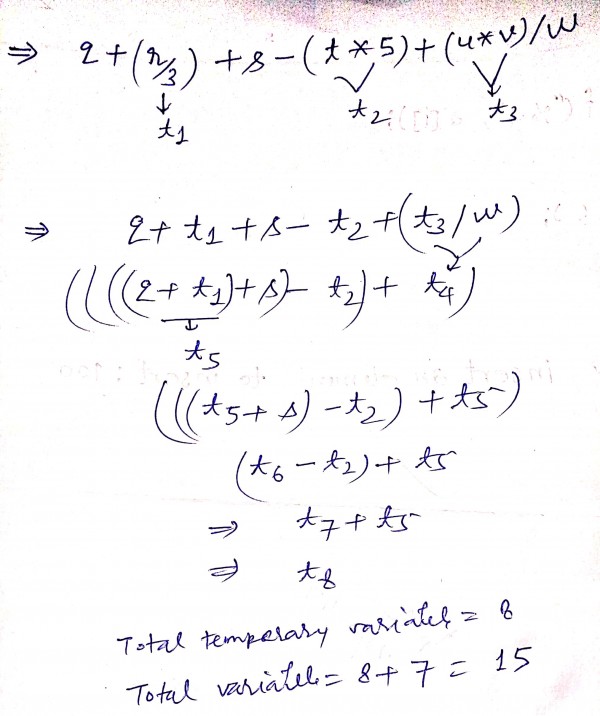 ⇒ q + (r/3) + s - (t * 5) + (u * v)/w
↓ t1 t2 ↓ t3
⇒ q + t1 + s - t2 + (t3/w)
((((q + t1) + s) - t2) + t4)
↓
t5
(((t5 + s) - t2) + t5)
(t6 - t2) + t5
⇒ t7 + t5
⇒ t8
Total temporary variables = 8
Total variables = 8 + 7 = 15